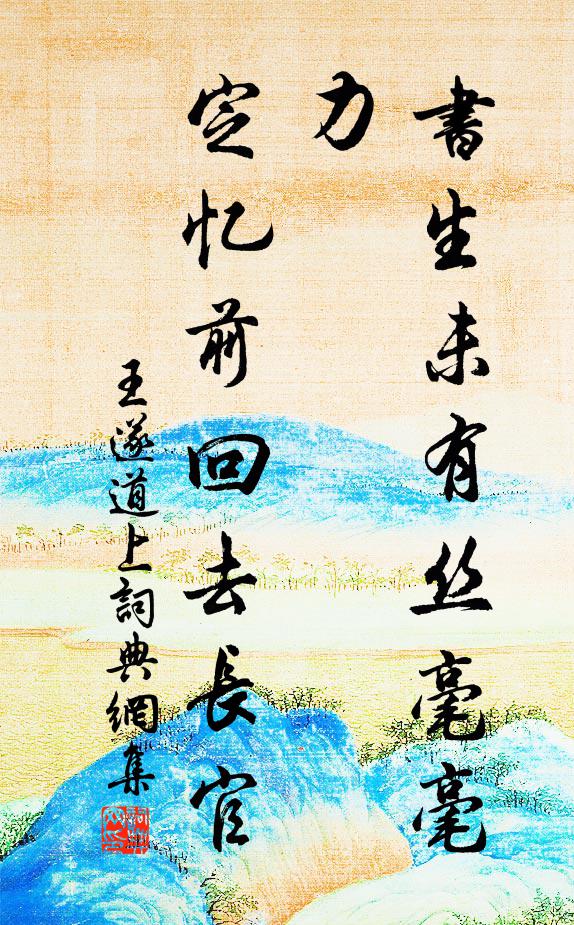 書生未有丝毫毫
力
定忆前回去長官
王遂道上詞典網集